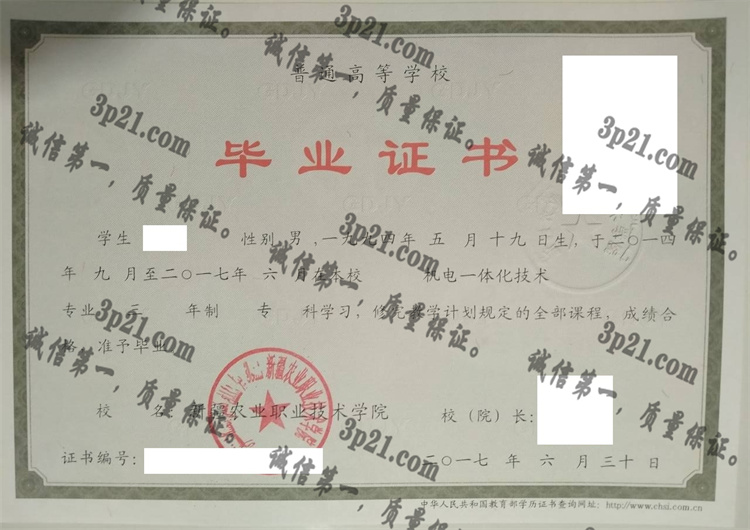 普通高等学校
毕业证书
学生 性别 男 ,一九九四年 五 月 十九日生，于二〇一四
年 九 月至二〇一七年 六 月在本校 机电一体化技术
专业 三 年制 专 科学习，修完教学计划规定的全部课程，成绩合
格 准予毕业
校 名：新疆农业职业技术学院 校（院）长：
证书编号： 二〇一七 年 六 月 三十 日
中华人民共和国教育部学历证书查询网址：http://www.chsi.com.cn
3p21.com
诚信第一，质量保证。
3p21.com
诚信第一，质量保证。
3p21.com
诚信第一，质量保证。
3p21.com
诚信第一，质量保证。
3p21.com
诚信第一，质量保证。
3p21.com
诚信第一，质量保证。
3p21.com
诚信第一，质量保证。
3p21.com
诚信第一，质量保证。